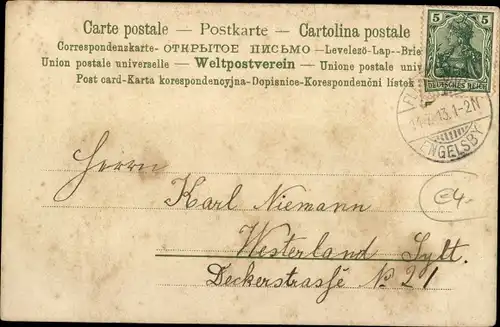 Carte postale — Postkarte — Cartolina postale
Correspondenzkarte- ОТКРЫТОЕ ПИСЬМО —Levelező-Lap--Brie
Union postale universelle — Weltpostverein — Unione postale univ
Post card-Karta korespondencyjna-Dopisnice-Korespondenční lístek
5 5
DEUTSCHES REICH
13.1-2N
ENGELSBY
Herrn
Karl Niemann
Westerland Sylt.
Deckerstrasse No 21
€4,-